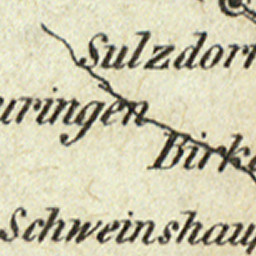 Sulzdorf
uringen
Birke
Schweinshaup